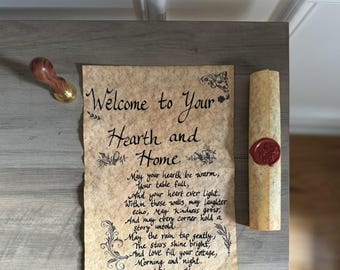 Welcome to Your
Hearth and
Home
May your hearth be warm,
Your table full,
And your heart ever light.
Within these walls, may laughter
echo, May kindness grow,
And may every corner hold a
story untold.
May the rain tap gently,
The stars shine bright,
And love fill your cottage,
Morning and night.